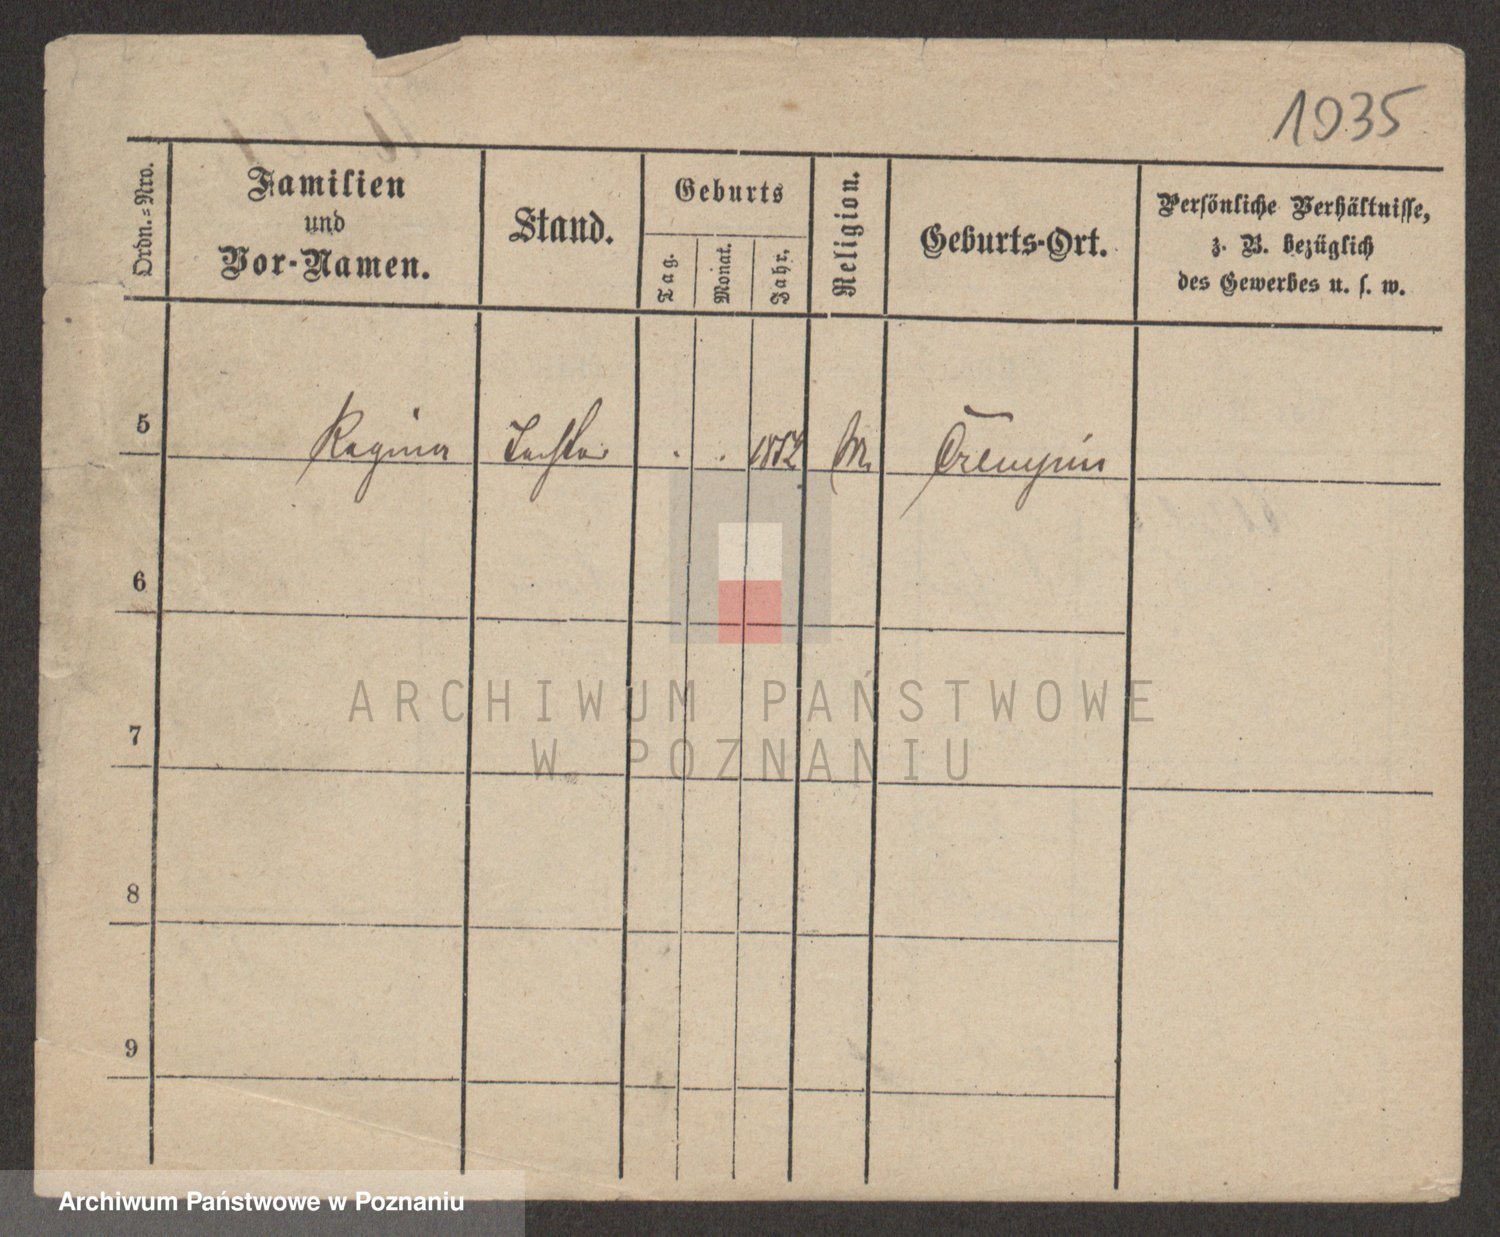 1035
Ordn.=Nro.
Familien
und
Vor-Namen.
Stand.
Geburts
Tag.
Monat.
Jahr.
Religion.
Geburts-Ort.
Persönliche Verhältnisse,
z. B. bezüglich
des Gewerbes u. s. w.
5 Regina Tochter . . 1852
6
7
8
9
ARCHIWUM PAŃSTWOWE
W POZNANIU
Archiwum Państwowe w Poznaniu